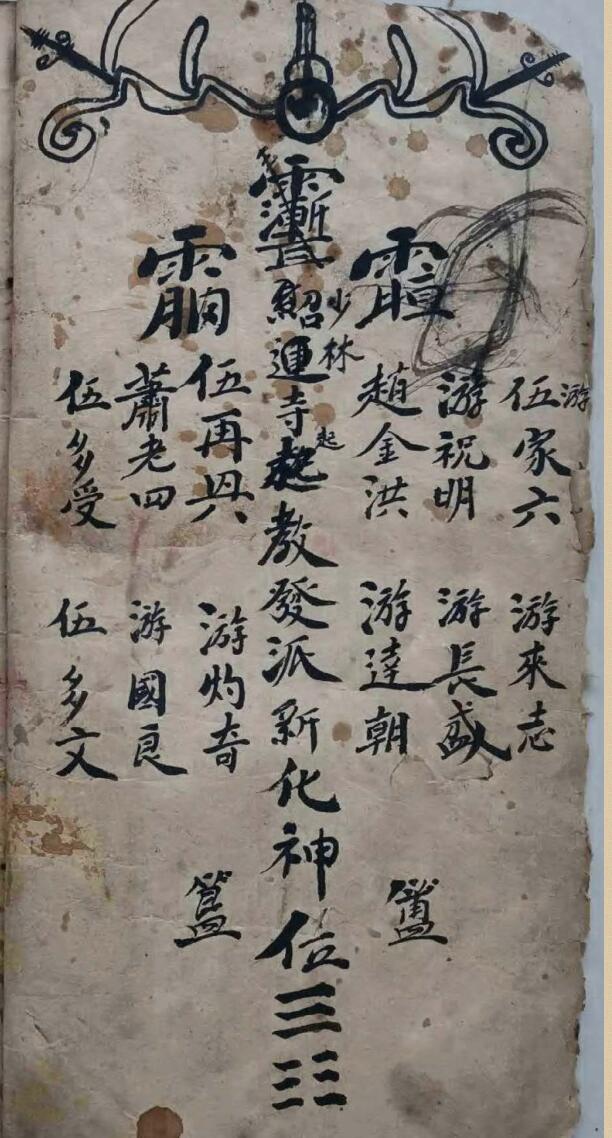 游
伍家六 游來志
游祝明 游長盛
趙金洪 游達朝
少林
起
紹運寺起教發派新化神位三
伍再興 游灼奇
蕭老四 游國良
伍多受 伍多文